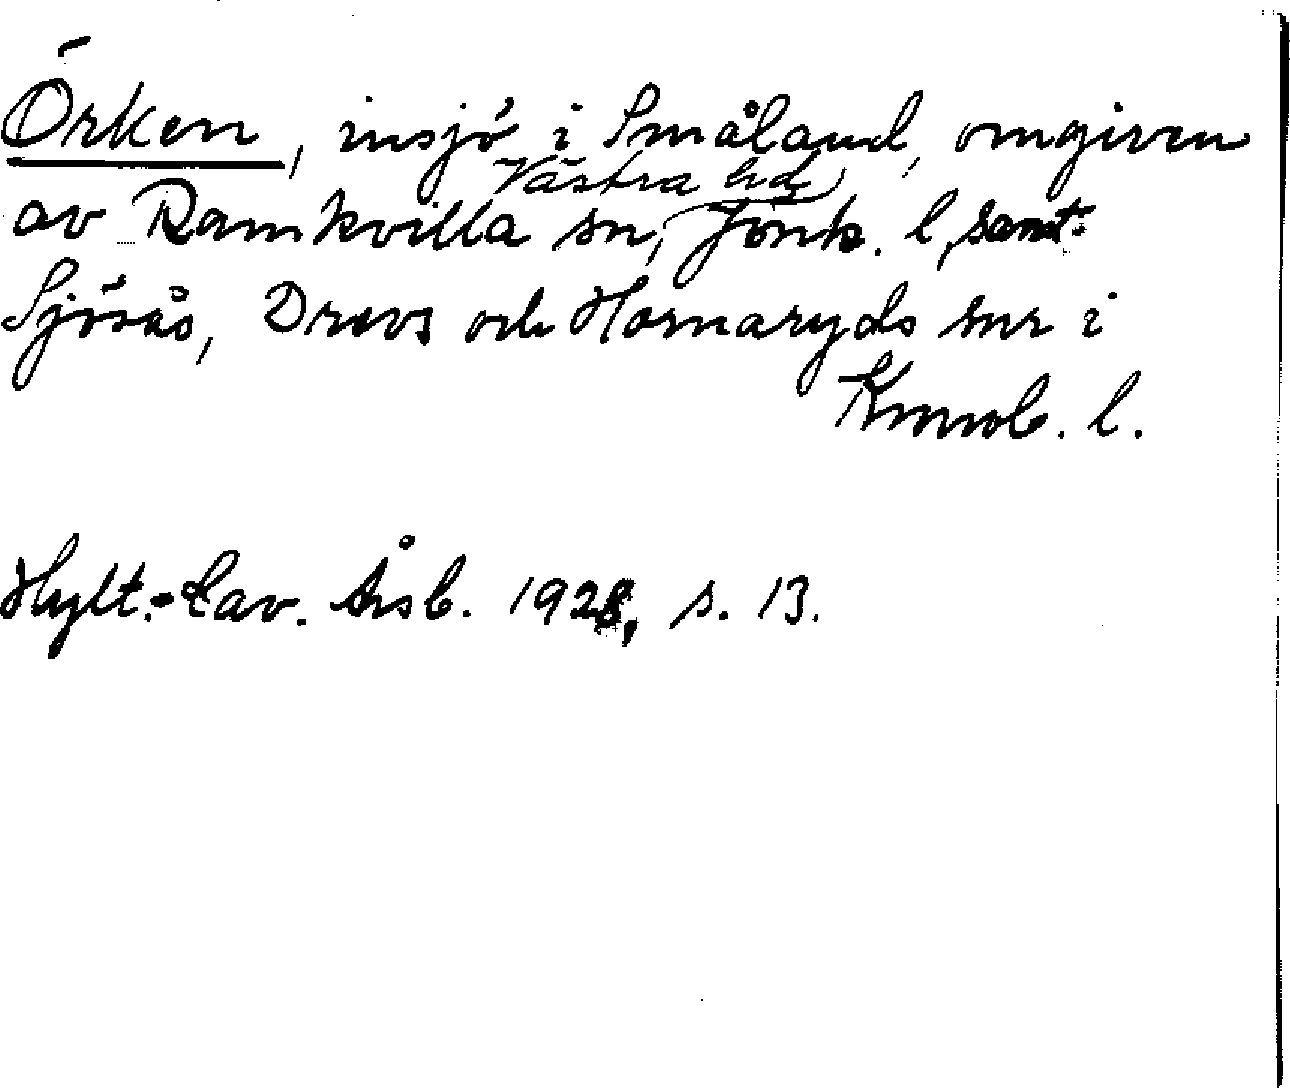 Örken, insjö i Småland, omgiven
Västra hd,
av Ramkvilla sn, Jönk. l, samt
Sjösås, Drevs och Hornaryds snr i
Kronob. l.
Hylt.-Cav. Årsb. 1928, s. 13.